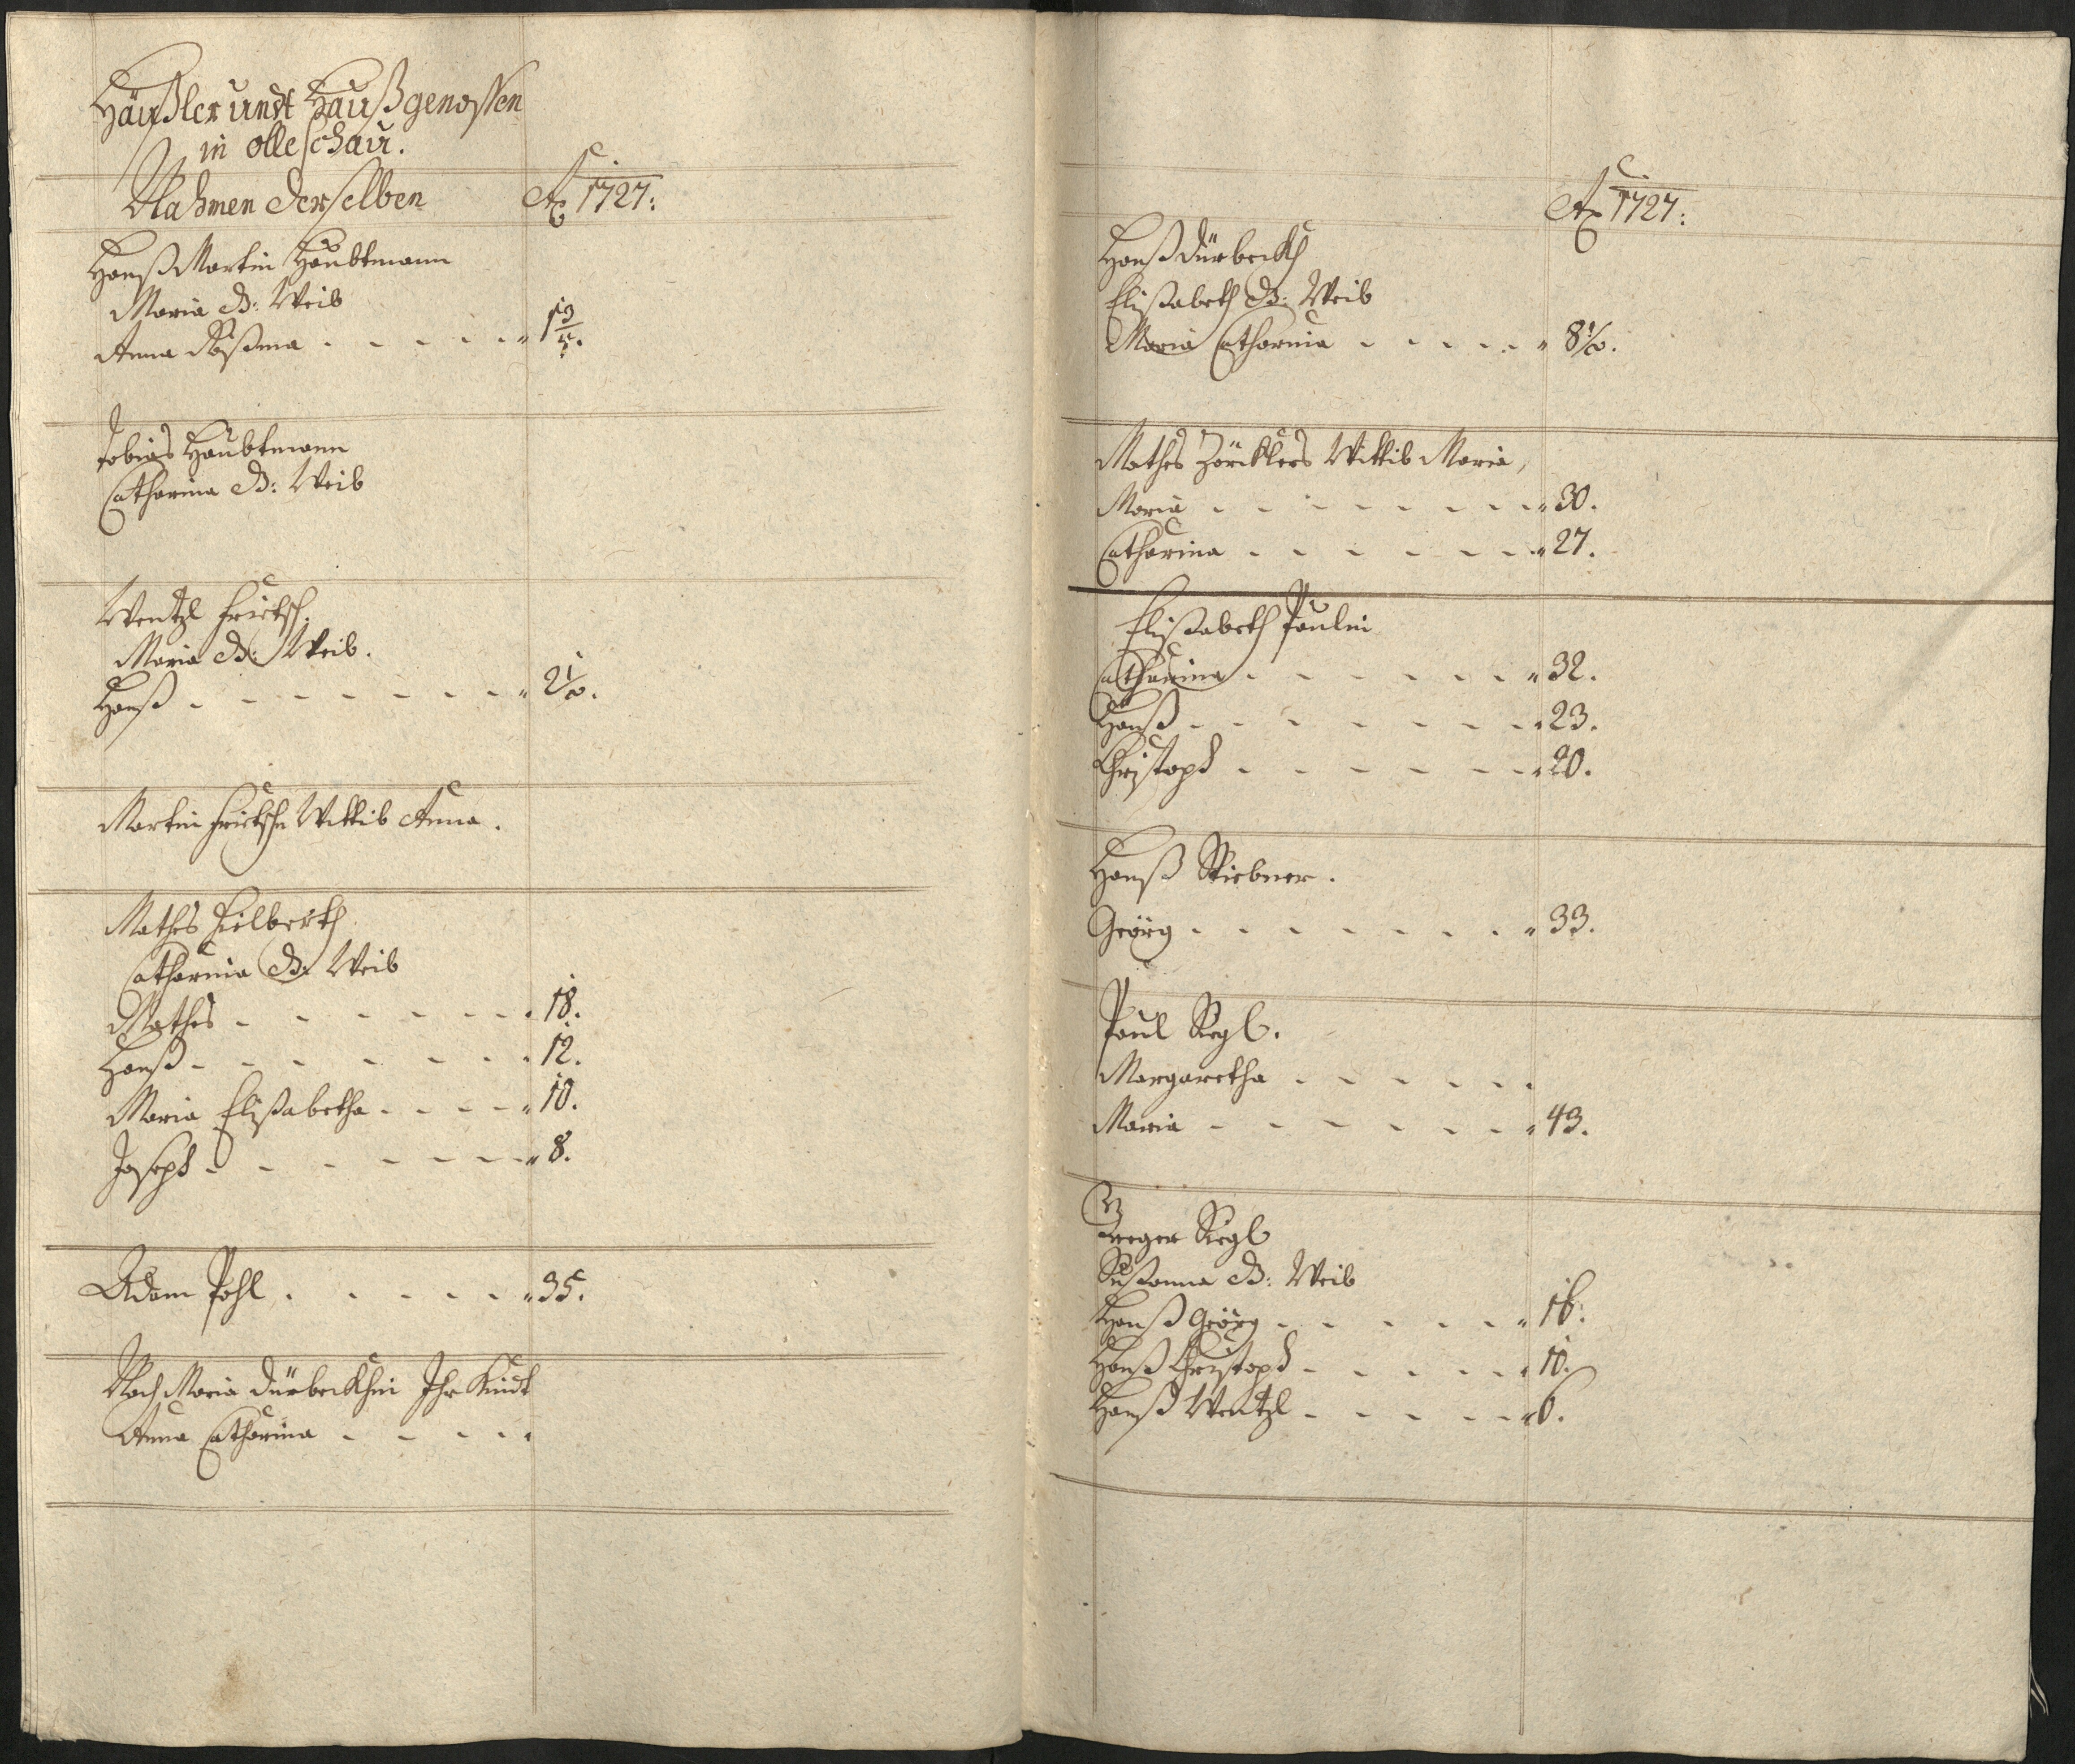 Häußler undt Haußgenossen
in olleschau.
Nahmen derselben Ao 1727:
Hanß Martin Haubtmann
Maria d: Weib
Anna Rosina - - - - - " 1 3/4.
Tobias Haubtmann
Catharina d: Weib
Wentzl Frietsch.
Maria d: Weib.
Hanß - - - - - - - " 2 1/2.
Martin Frietsche Wittib Anna.
Mathes Hielberth
Catharina d: Weib
Mathes - - - - - - " 18.
Hanß - - - - - - - " 12.
Maria Elisabetha - - - - " 10.
Joseph - - - - - - - " 8.
Adam Pohl - - - - - " 35.
Noch Maria Dürbeckhin Ihr Kindt
Anna Catharina - - - - -
Ao 1727:
Hanß Dürbeckh
Elisabeth d: Weib
Maria Catharina - - - - - " 8 1/2.
Mathes Zöricklers Wittib Maria,
Maria - - - - - - - - " 30.
Catharina - - - - - - - " 27.
Elisabeth Paulin
Catharina - - - - - - " 32.
Hanß - - - - - - - " 23.
Christoph - - - - - - " 20.
Hanß Stiebner.
Geörg - - - - - - - " 33.
Paul Siegl.
Margaretha - - - - - -
Maria - - - - - - - " 43.
Greger Siegl
Susanna d: Weib
Hanß Geörg - - - - - " 16.
Hanß Christoph - - - - - " 10.
Hanß Wentzl - - - - - " 6.